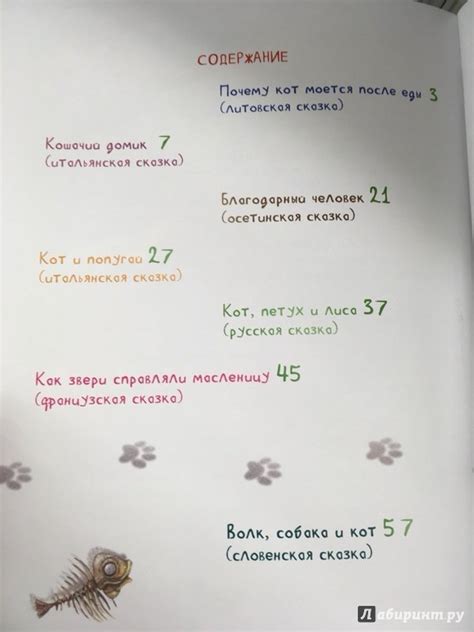 СОДЕРЖАНИЕ
Почему кот моется после еды 3
(литовская сказка)
Кошачий домик 7
(итальянская сказка)
Благодарный человек 21
(осетинская сказка)
Кот и попугай 27
(итальянская сказка)
Кот, петух и лиса 37
(русская сказка)
Как звери справляли масленицу 45
(французская сказка)
Волк, собака и кот 57
(словенская сказка)
Лабиринт.ру